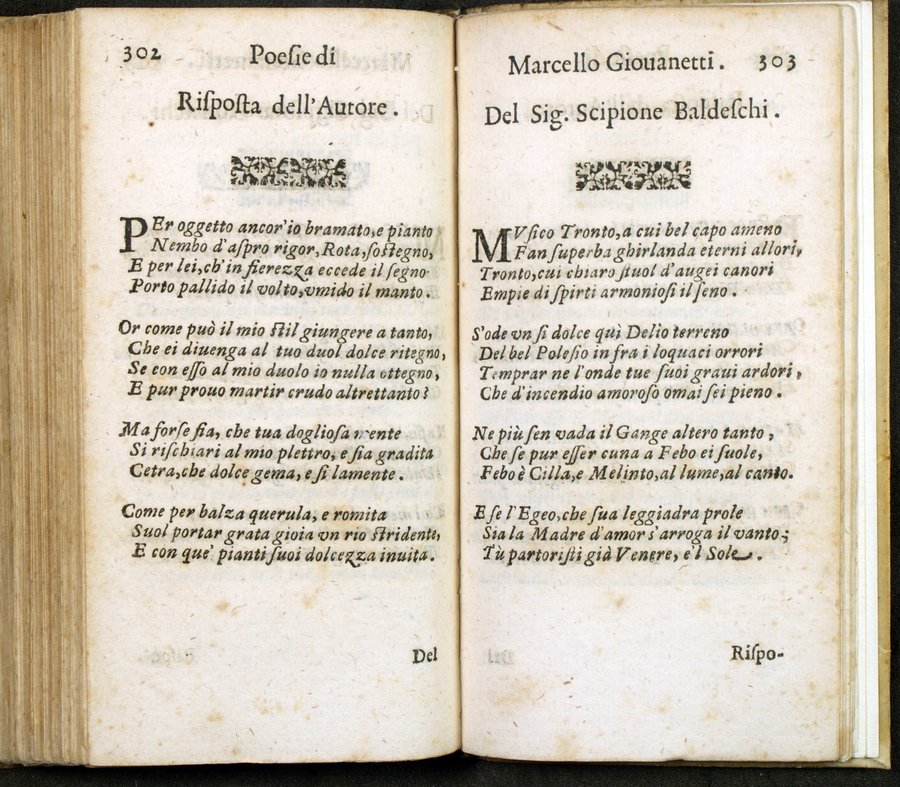 302 Poeſie di
Riſpoſta dell'Autore.
PEr oggetto ancor'io bramato, e pianto
Nembo d'aſpro rigor, Rota, ſoſtegno,
E per lei, ch'in fierezza eccede il ſegno
Porto pallido il volto, vmido il manto.
Or come può il mio ſtil giungere a tanto,
Che ei diuenga al tuo duol dolce ritegno,
Se con eſſo al mio duolo io nulla ottegno,
E pur prouo martir crudo altrettanto?
Ma forſe fia, che tua doglioſa mente
Si riſchiari al mio plettro, e ſia gradita
Cetra, che dolce gema, e ſi lamente.
Come per balza querula, e romita
Suol portar grata gioia vn rio ſtridente,
E con que' pianti ſuoi dolcezza inuita.
Del
Marcello Giouanetti. 303
Del Sig. Scipione Baldeſchi.
MVſico Tronto, a cui bel capo ameno
Fan ſuperba ghirlanda eterni allori,
Tronto, cui chiaro ſtuol d'augei canori
Empie di ſpirti armonioſi il ſeno.
S'ode vn ſi dolce quì Delio terreno
Del bel Poleſio in fra i loquaci orrori
Temprar ne l'onde tue ſuoi graui ardori,
Che d'incendio amoroſo omai ſei pieno.
Ne più ſen vada il Gange altero tanto,
Che ſe pur eſſer cuna a Febo ei ſuole,
Febo è Cilla, e Melinto, al lume, al canto.
E ſe l'Egeo, che ſua leggiadra prole
Sia la Madre d'amor s'arroga il vanto;
Tù partoriſti già Venere, e'l Sole.
Riſpo-